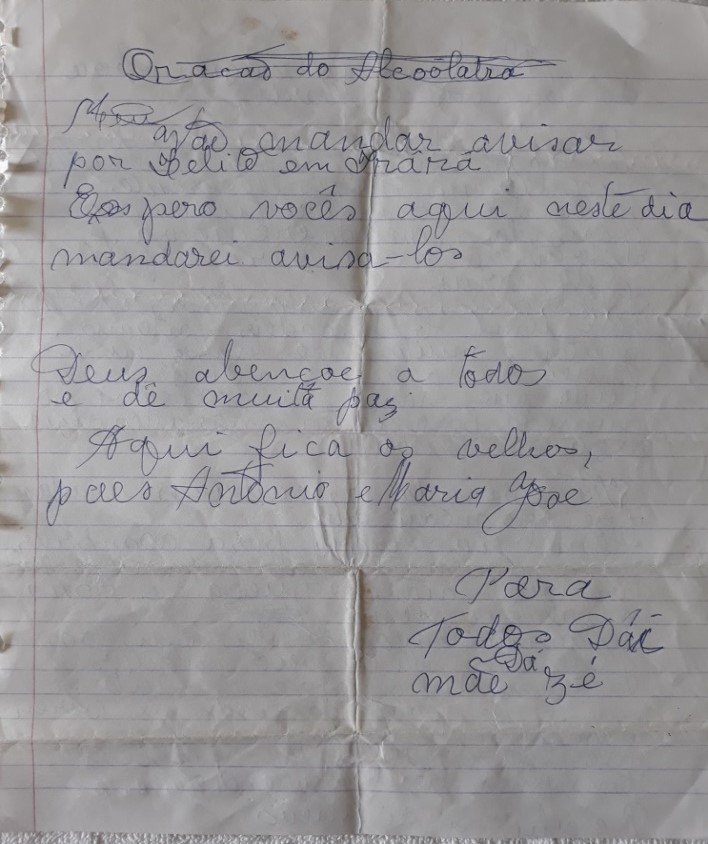 Oracao do Alcoolatra
vão mandar avisar
por Belito em Irárá
Espero vocês aqui neste dia
mandarei avisa-los
Deus abençoe a todos
e dê muita paz
Aqui fica os velhos,
paes Antônio e Maria José
Para
Todos Dái
Dá
mãe zé